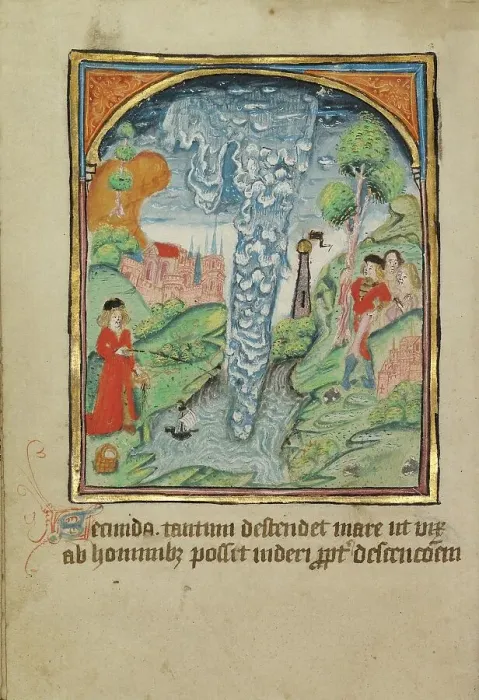 Secunda. tantum descendet mare ut vix
ab hominibꝫ possit videri ꝓpt' descencōem